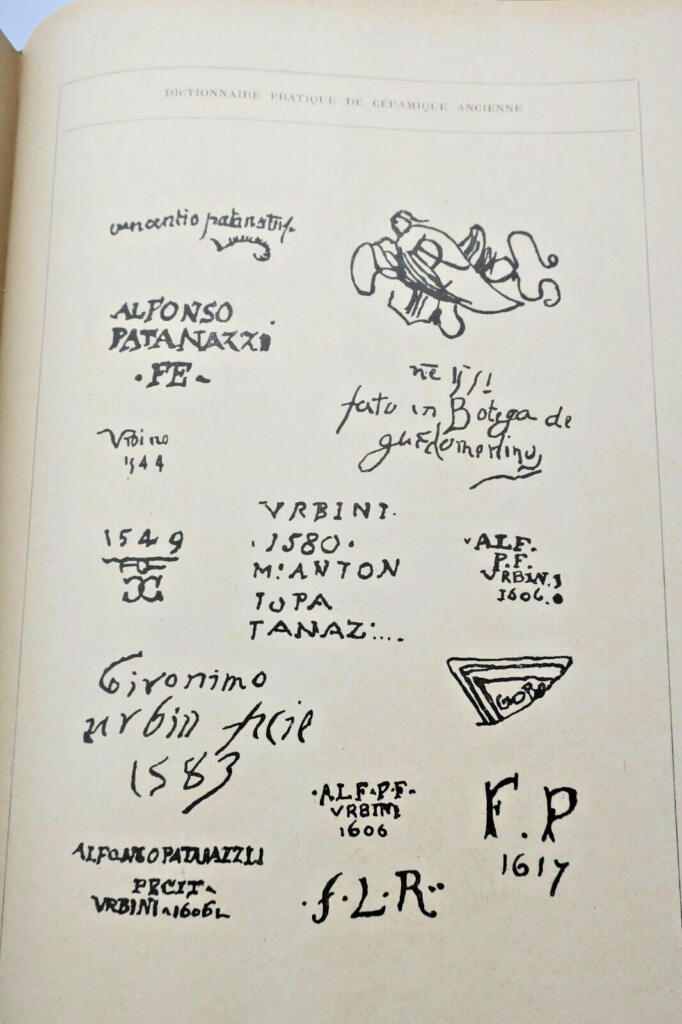 DICTIONNAIRE PRATIQUE DE CÉRAMIQUE ANCIENNE
ALFONSO
PATANAZZI
·FE~
fato in Botega de
Vrbino
1544
1549
VRBINI·
·1580·
Mº ANTON
IOPA
TANAZ:...
ALF.
P.F.
VRBINI
1606.
Gironimo
urbin fecie
1583
GOBE
·ALF·P·F·
VRBINI
1606
F.P
1617
ALFONSO PATANAZZI
FECIT~
VRBINI~1606
·f·L·R··